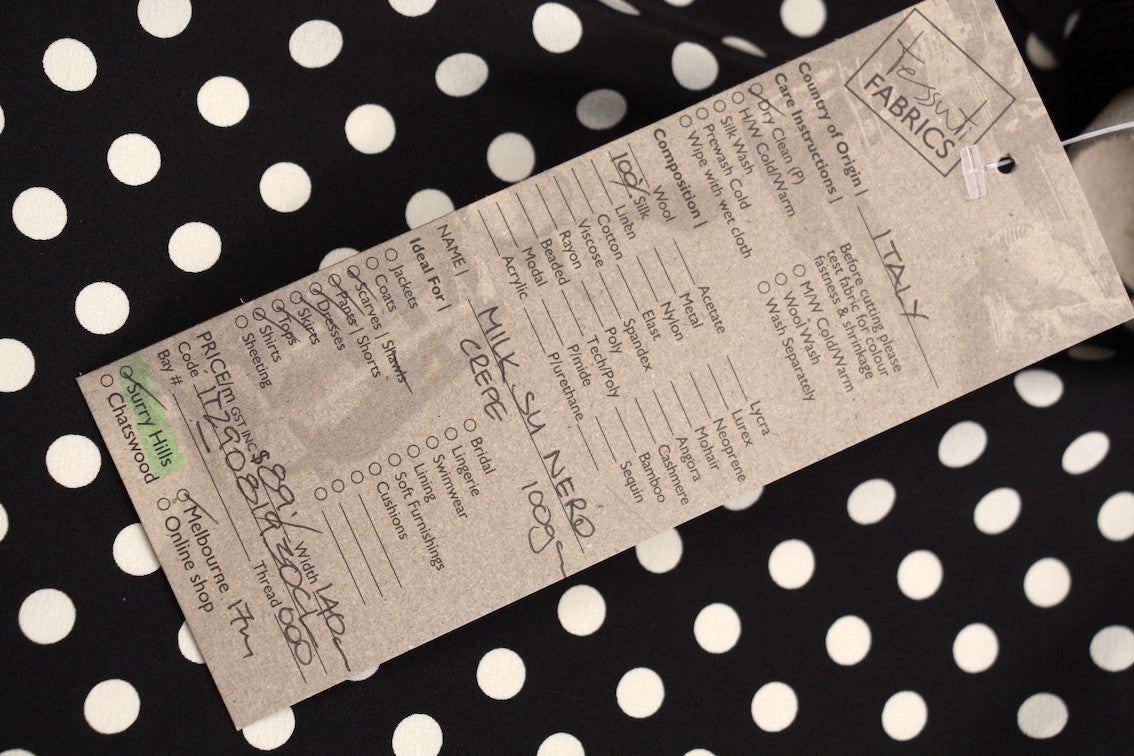 Tessuti
FABRICS
Country of Origin | ITALY
Care Instructions |
Dry Clean (P)
H/W Cold/Warm
Silk Wash
Prewash Cold
Wipe with wet cloth
Before cutting please
test fabric for colour
fastness & shrinkage
M/W Cold/Warm
Wool Wash
Wash Separately
Composition |
Wool
100% Silk
Linen
Cotton
Viscose
Rayon
Beaded
Modal
Acrylic
Acetate
Metal
Nylon
Elast
Spandex
Poly
Tech/Poly
P/mide
P/urethane
Lycra
Lurex
Neoprene
Mohair
Angora
Cashmere
Bamboo
Sequin
NAME | MILK SU NERO
CREPE 100g
Ideal For |
Jackets
Coats
Scarves / Shawls
Pants / Shorts
Dresses
Skirts
Tops
Shirts
Sheeting
Bridal
Lingerie
Swimwear
Lining
Soft Furnishings
Cushions
PRICE/m GST INC $89 Width 140c
Code Thread 600
Bay #
Surry Hills
Chatswood
Melbourne 17m
Online shop